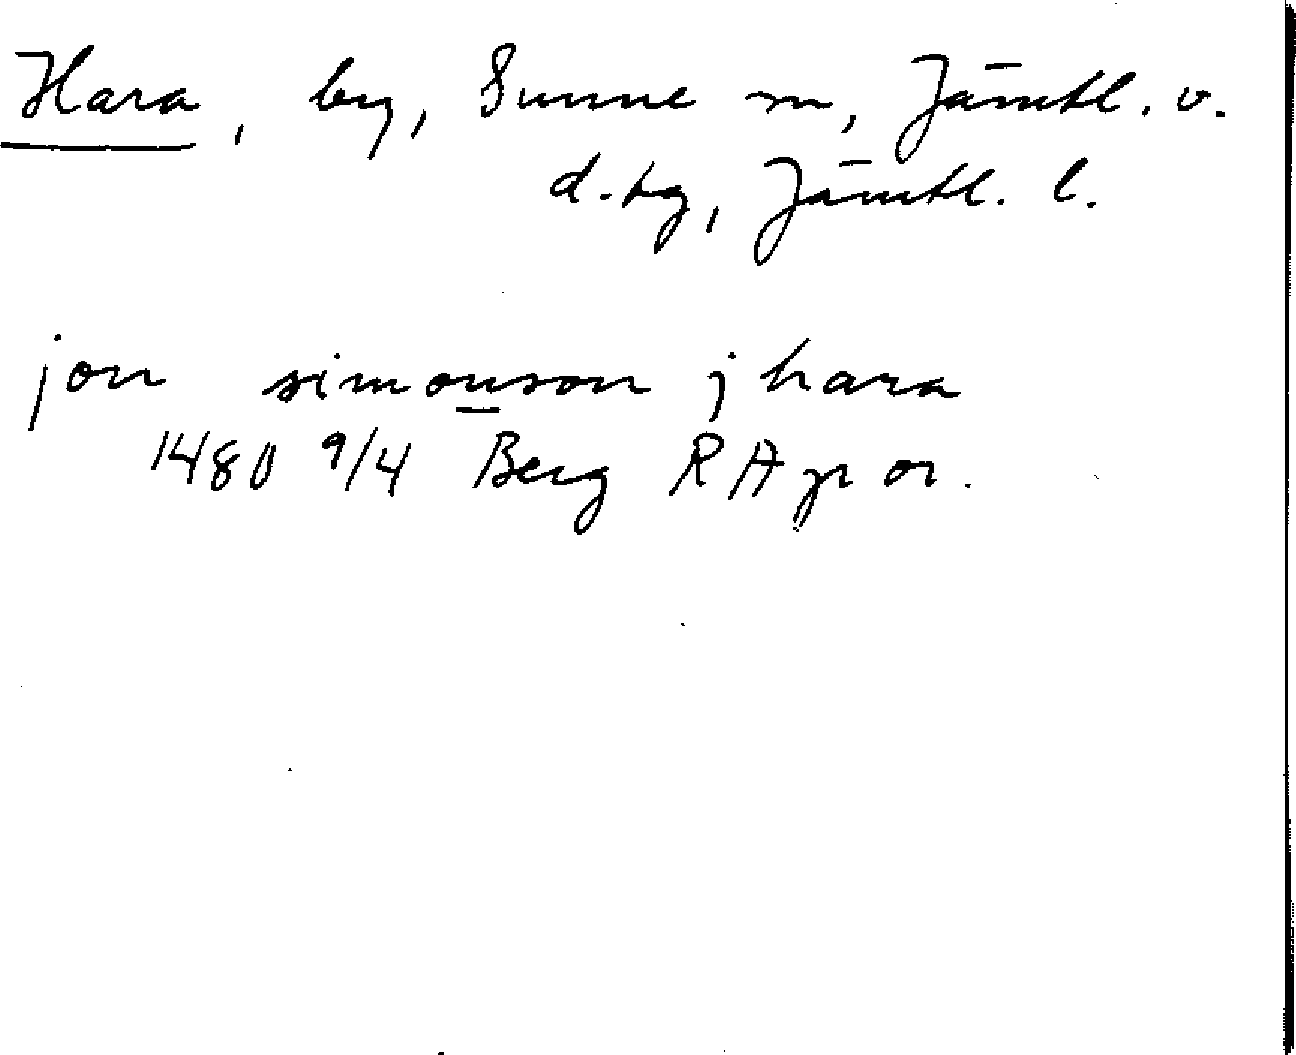 Hara, by, Sunne sn, Jämtl. v.
d. tg, Jämtl. l.
jon simonson j hara
1480 9/4 Berg RAp or.